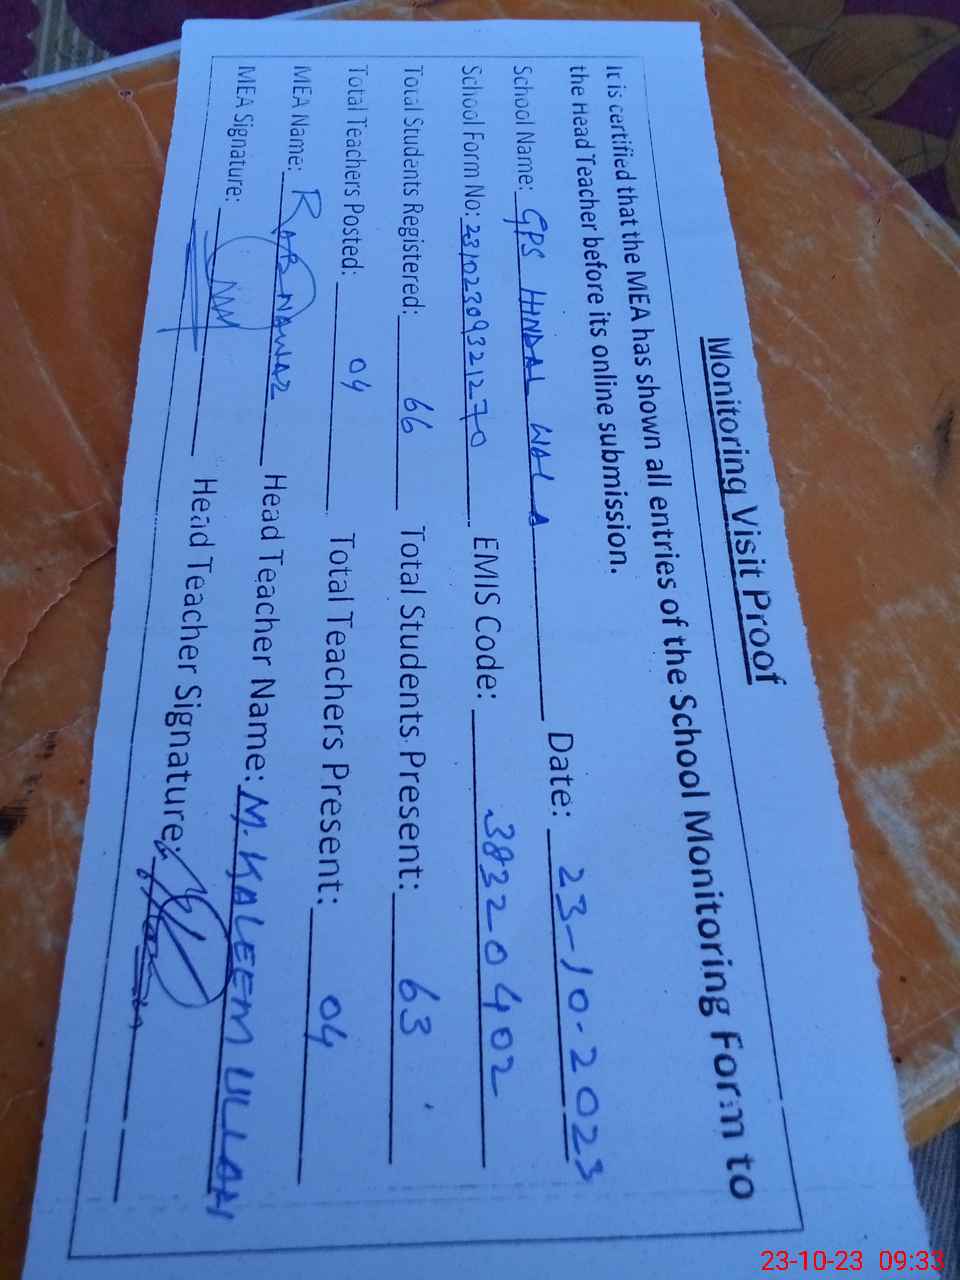 Monitoring Visit Proof
It is certified that the MEA has shown all entries of the School Monitoring Form to
the Head Teacher before its online submission.
School Name: GPS HINDAL WALA Date: 23-10-2023
School Form No: 23102309321270 EMIS Code: 38320402
Total Students Registered: 66 Total Students Present: 63
Total Teachers Posted: 04 Total Teachers Present: 04
MEA Name: RAB NAWAZ Head Teacher Name: M. KALEEM ULLAH
MEA Signature: Head Teacher Signature:
23-10-23 09:33